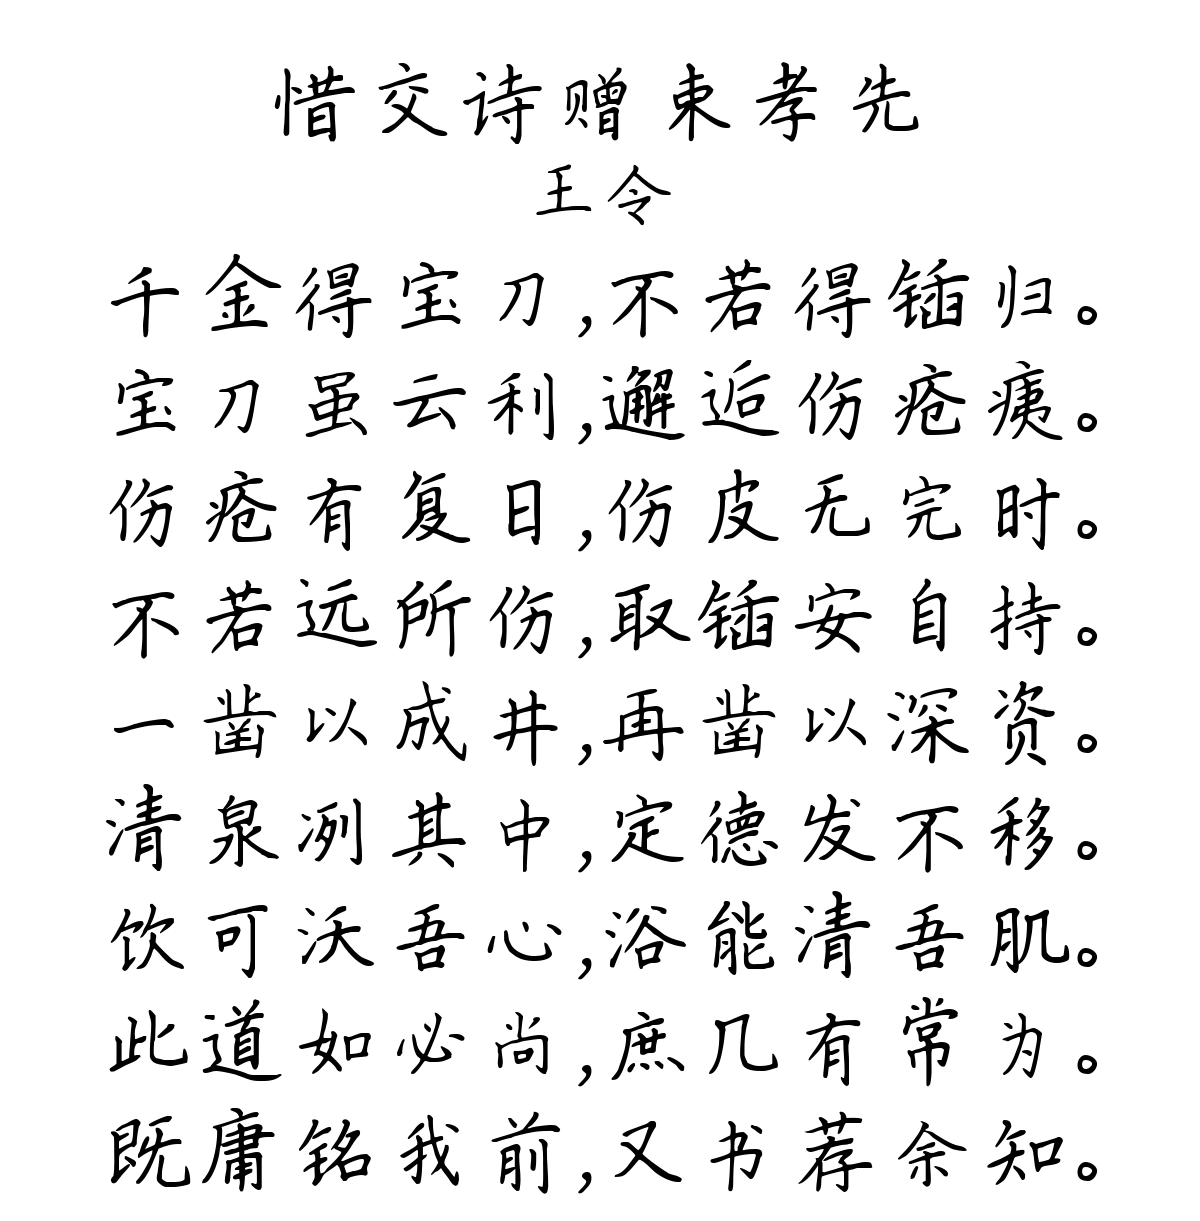 惜交诗赠束孝先
王令
千金得宝刀,不若得锸归。
宝刀虽云利,邂逅伤疮痍。
伤疮有复日,伤皮无完时。
不若远所伤,取锸安自持。
一凿以成井,再凿以深资。
清泉冽其中,定德发不移。
饮可沃吾心,浴能清吾肌。
此道如必尚,庶几有常为。
既庸铭我前,又书荐余知。